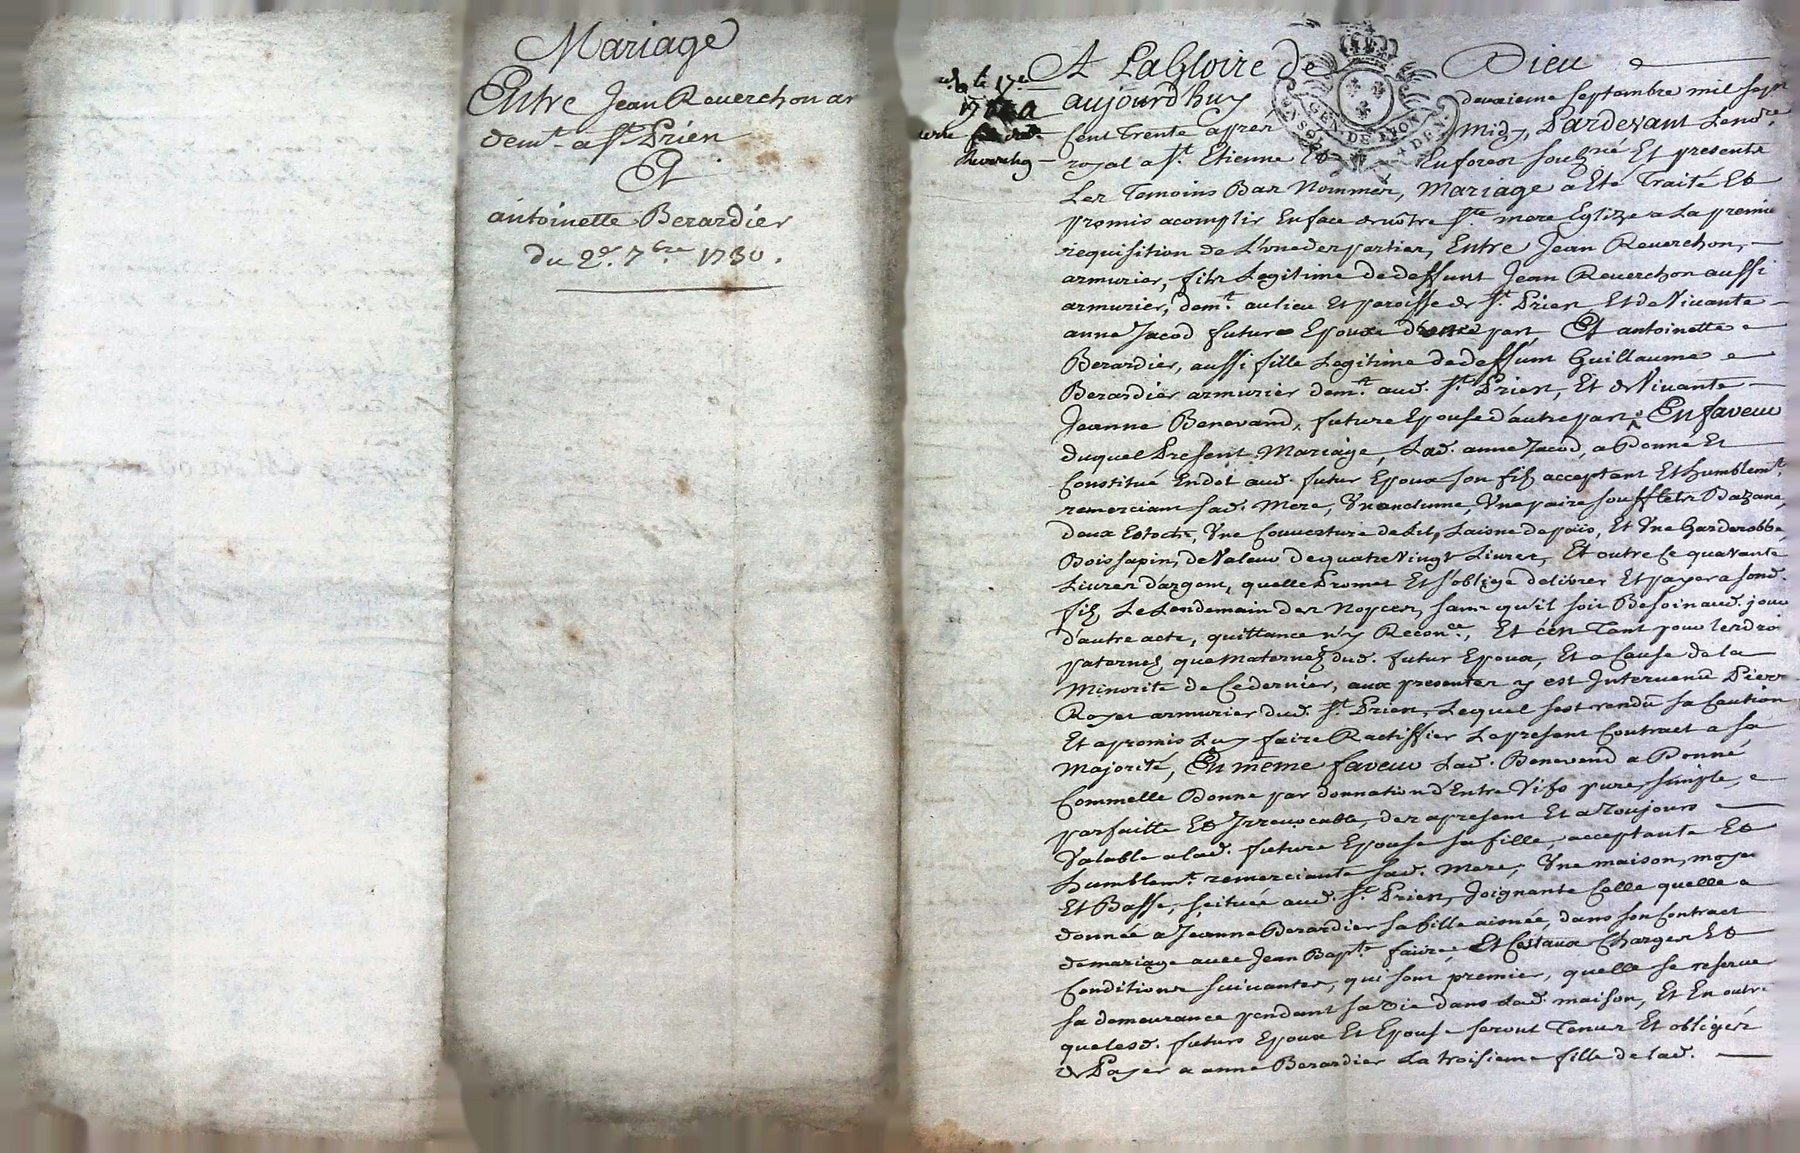 Mariage
Entre Jean Reverchon ar
demt. a St. Prien
Et
antoinette Berardier
du 2e. 7bre 1730.
A La Gloire de Dieu
aujourdhuy deuxieme septembre mil sept
Cent Trente apres midy, Pardevant Le no.re
royal a St. Etienne En forest souz.né Et presents
Les Temoins Bas Nommez, Mariage a Eté Traité Et
promis acomplir En face de nôtre Ste. mere Eglize a La premie
requisition de L'une des parties, Entre Jean Reverchon,
armurier, fils Legitime de deffunt Jean Reverchon aussi
armurier, demt. au lieu Et paroisse de St. Prien Et de Vivante
anne Jacod futur Epoux d'une part Et antoinette
Berardier, aussi fille Legitime de deffunt Guillaume
Berardier armurier demt. aud. St. Prien, Et de Vivante
Jeanne Benevand, future Epouse d'autre part, En faveur
duquel Present Mariage, Lad. anne Jacod, a Donné Et
Constitué En dot aud. futur Epoux son filz acceptant Et humblemt.
remerciant sad. Mere, Un anclume, Une paire soufflets Bazane,
deux Estochs, Une Couverture de Lit, Laisne de païs, Et Une Garderobbe,
Bois sapin, de Valeur de quatre Vingt Livres, Et outre Ce quarante
Livres d'argent, quelle Promet Et s'oblige delivrer Et payer a sond.
filz Le Lendemain des Nopces, sans qu'il soit Besoin aud. jour
d'autre acte, quittance n'y Recon.ce, Et c'est Tant pour les droi
paternelz que Maternelz dud. futur Epoux, Et a Cause de la
Minorité de Ce dernier, aux presentes y est Intervenu Pierr
Royet armurier dud. St. Prien, Lequel s'est rendu sa Caution
Et a promis Luy faire Ractiffier Le present Contract a sa
Majorité, En même faveur Lad. Benevend a Donné
Comme Elle Donne par donnation d'Entre Vifs pure, simple,
parfaitte Et Irrevocable, des a present Et a Toujours
Valable a lad. future Epouse sa fille, acceptante Et
humblemt. remerciante sad. Mere, Une maison, moye
Et Basse, scituée aud. St. Prien, Joignante Celle quelle a
donnée a Jeanne Berardier sa fille aisnée, dans son Contract
de mariage avec Jean Bapte. faure, Et C'est aux Charges Et
Conditions suivantes, qui sont premier, quelle se reserve
sa demeurance pendant sa Vie dans Lad. maison, Et En outre
que lesd. futurs Epoux Et Epouse seront Tenus Et obligés
de Payer a anne Berardier La troisieme fille de lad.